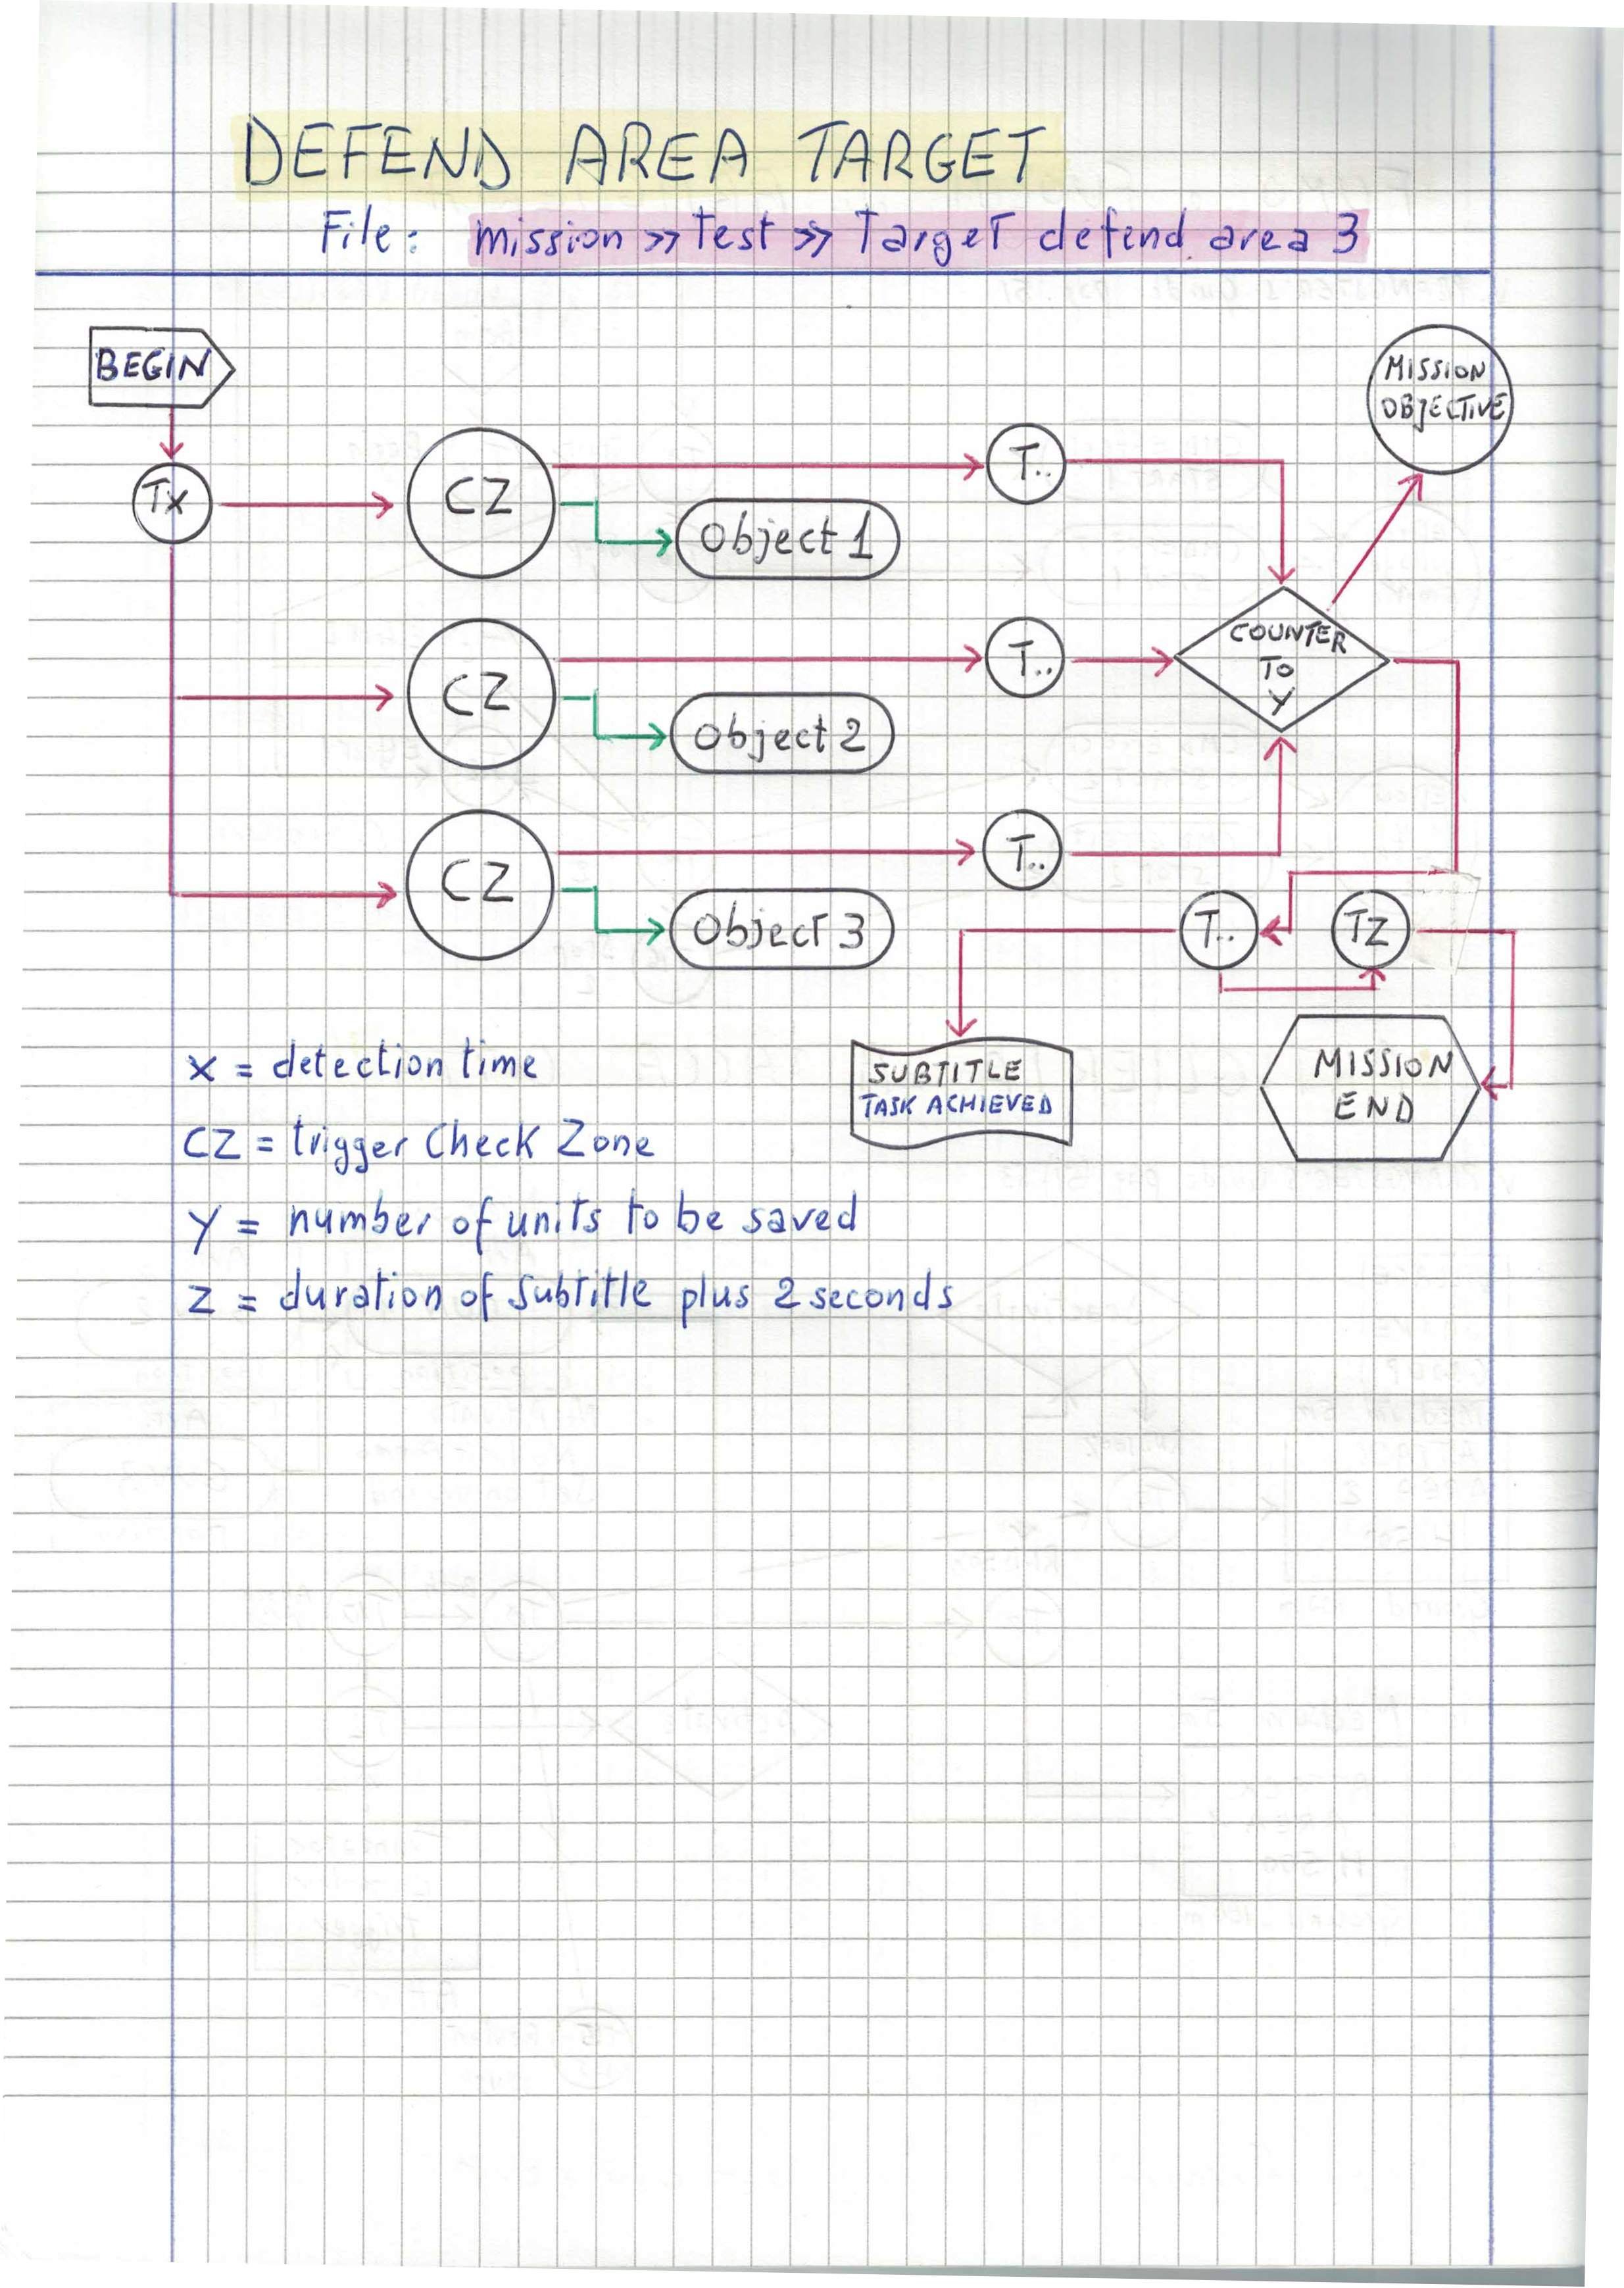 DEFEND AREA TARGET
File: mission >> Test >> Target defend area 3
BEGIN
MISSION
OBJECTIVE
TX
CZ
T..
Object 1
CZ
T..
Object 2
COUNTER
TO
Y
CZ
T..
Object 3
T..
TZ
X = detection time
SUBTITLE
TASK ACHIEVED
MISSION
END
CZ = trigger Check Zone
Y = number of units to be saved
Z = duration of subtitle plus 2 seconds